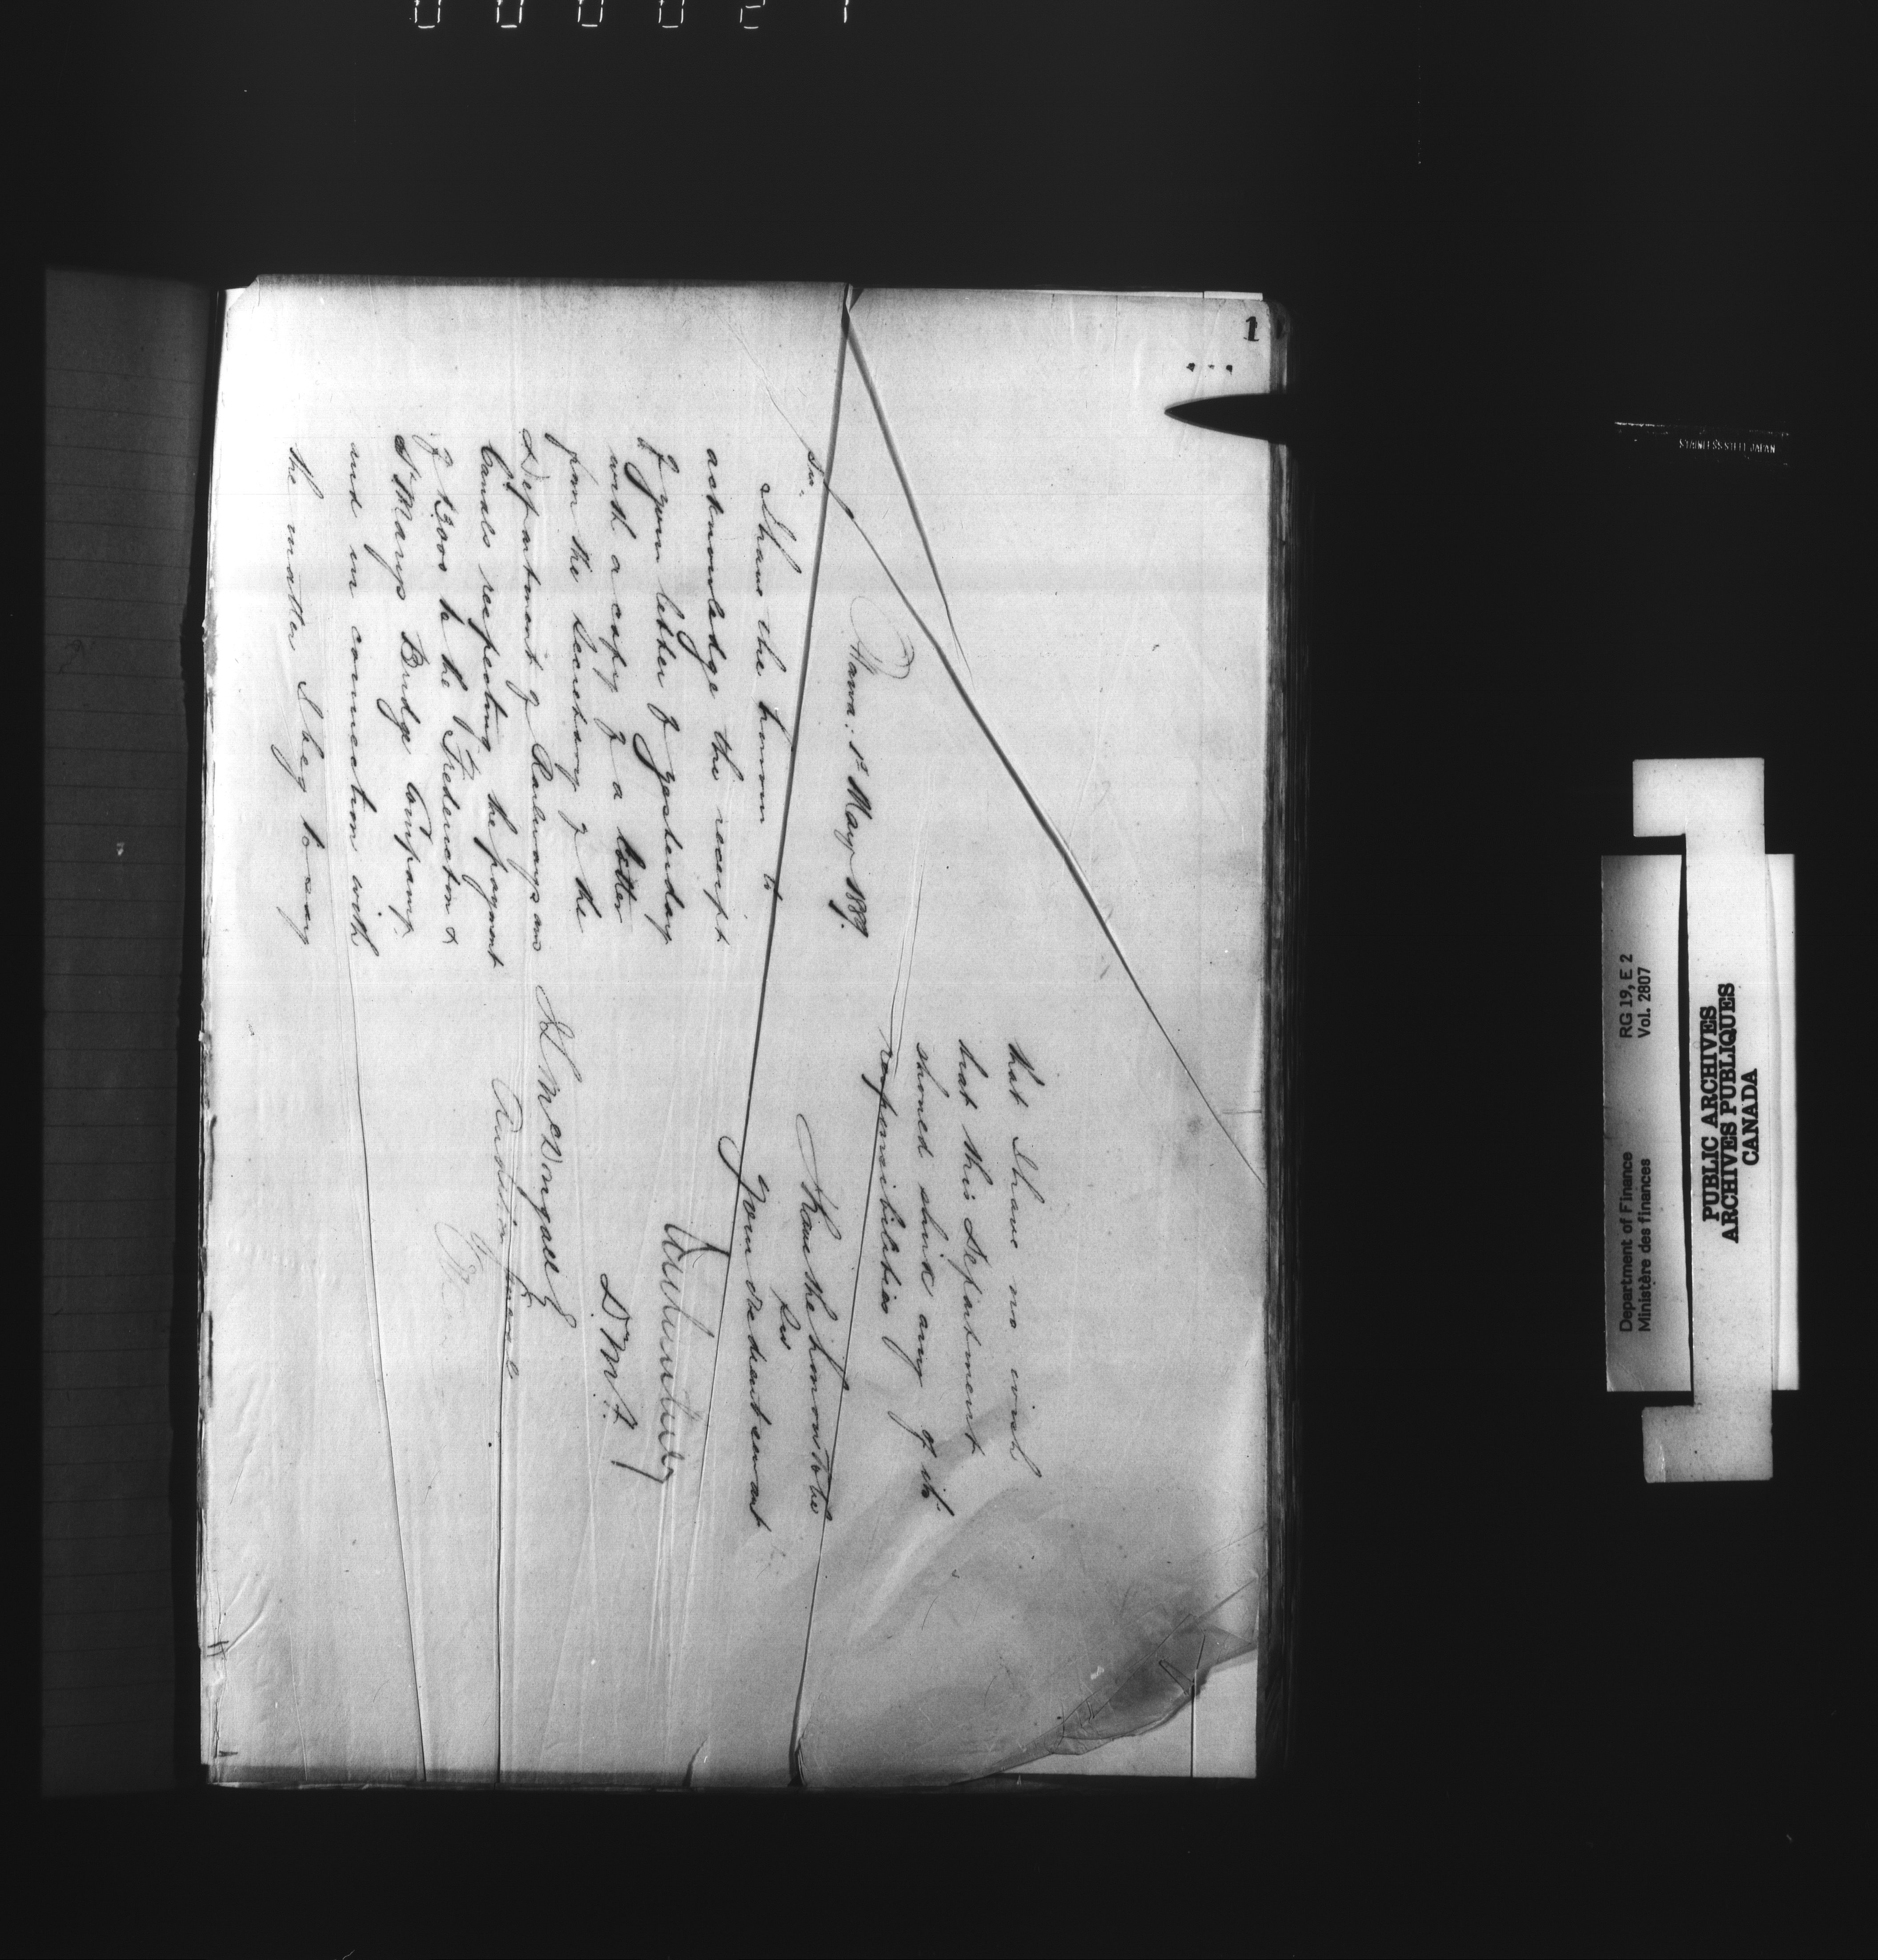 1
Ottawa: 1st May 1889.
Sir.
I have the honour to
acknowledge the receipt
of your letter of yesterday
with a copy of a letter
from the Secretary of the
Department of Railways and
Canals respecting the payment
of
to the Fredericton &
St Marys Bridge Company.
and in connection with
the matter I beg to say
that I have no wish
that this Department
should shirk any of its
responsibilities
I have the honour to be
Sir
Your obedient servant
D.M.F.
J L McDougall Esq
Auditor General
PUBLIC ARCHIVES
ARCHIVES PUBLIQUES
CANADA
Department of Finance
Ministère des finances
RG 19, E 2
Vol. 2807